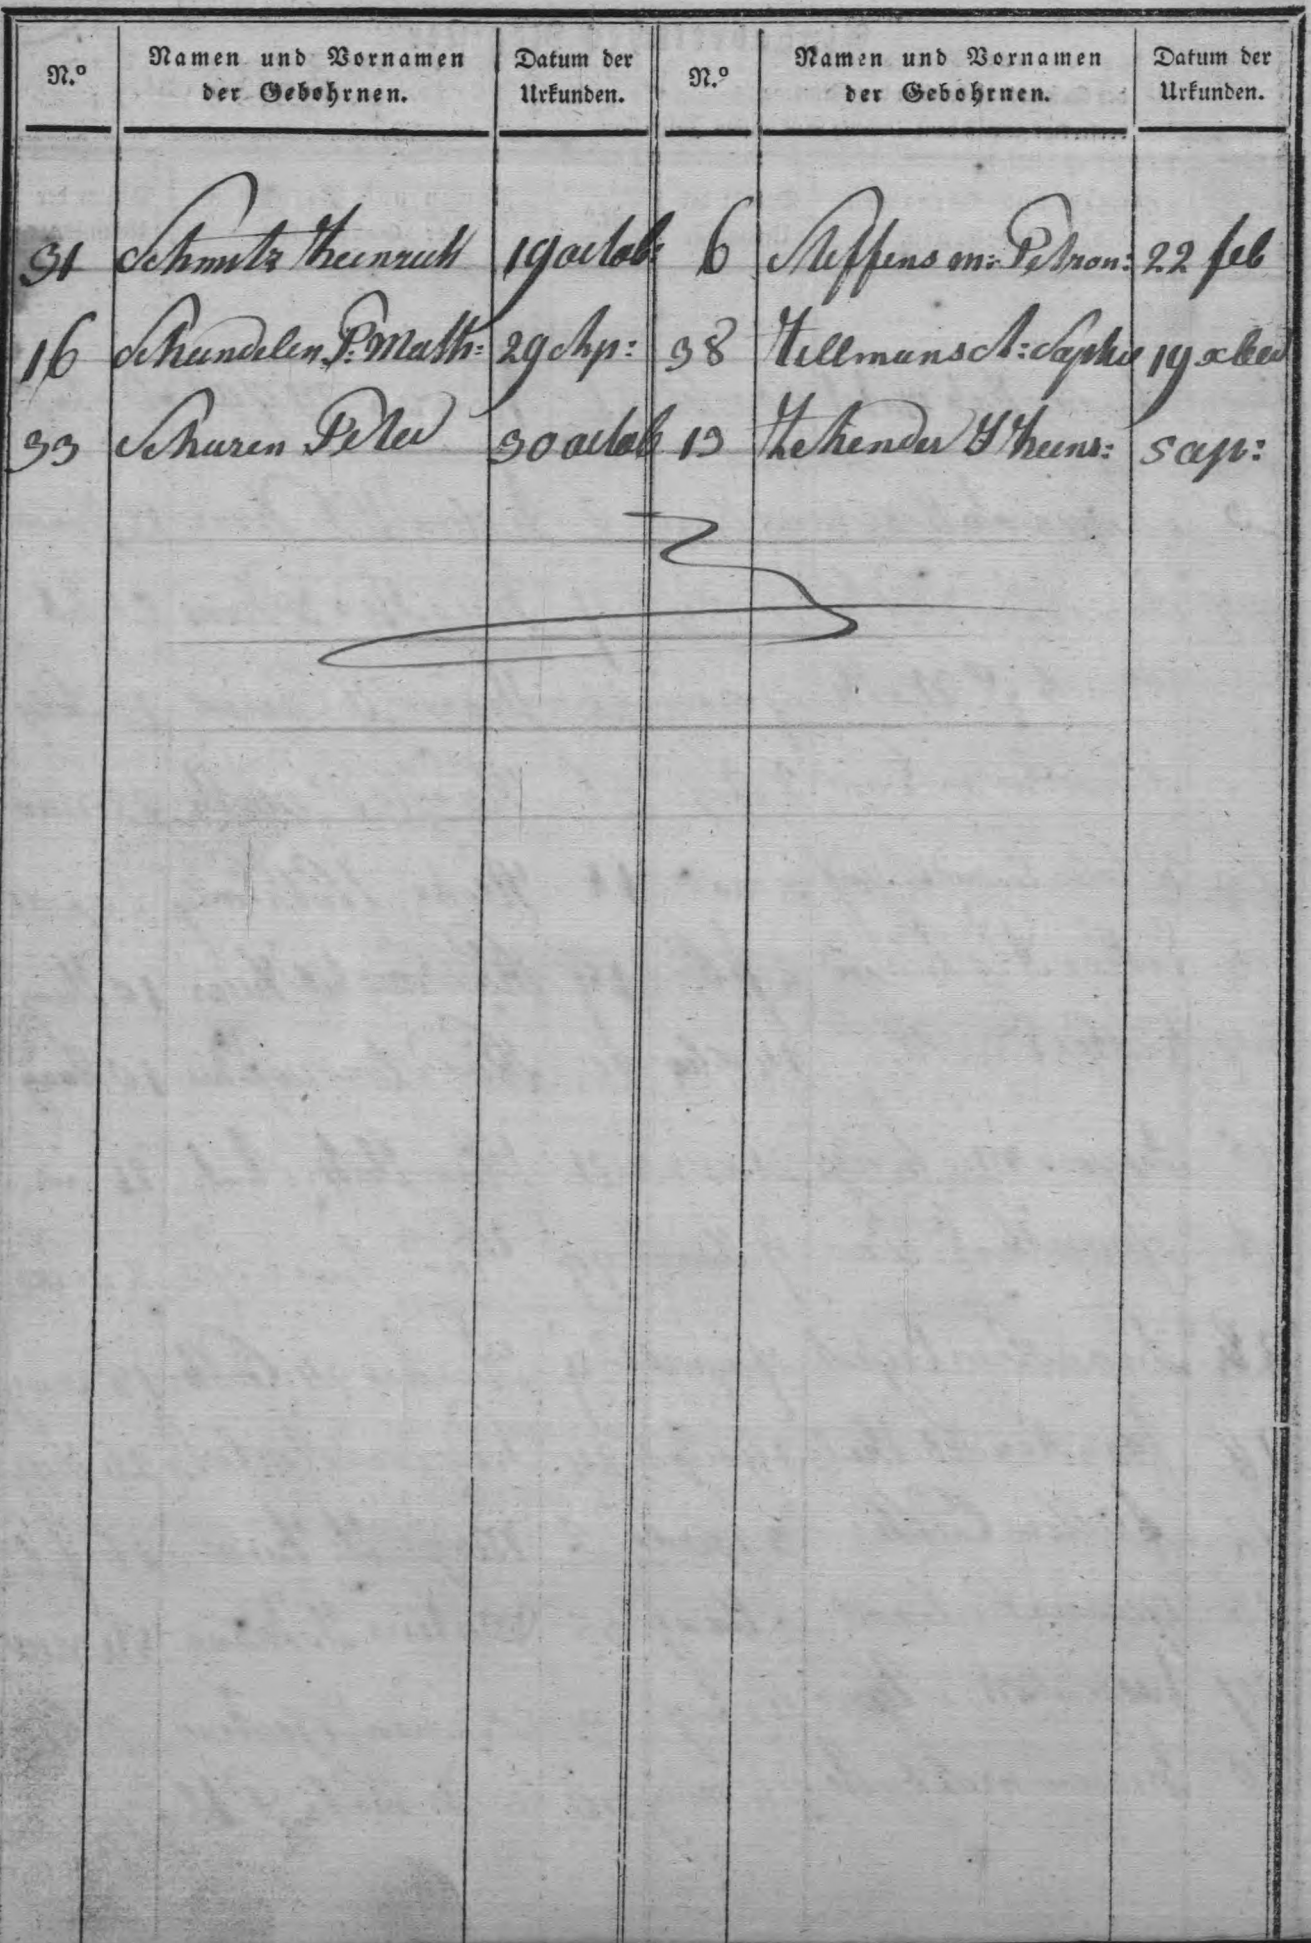 N.º Namen und Vornamen der Gebohrnen. Datum der Urkunden. N.º Namen und Vornamen der Gebohrnen. Datum der Urkunden.
31 Schmitz Heinrich 19 octob: 6 Steffens m: Petron: 22 feb
16 P: Math: 29 38 Tillmans A: Sophie 19
33 Schuren Peter 30 octob 13 Heinr: 5 ap: